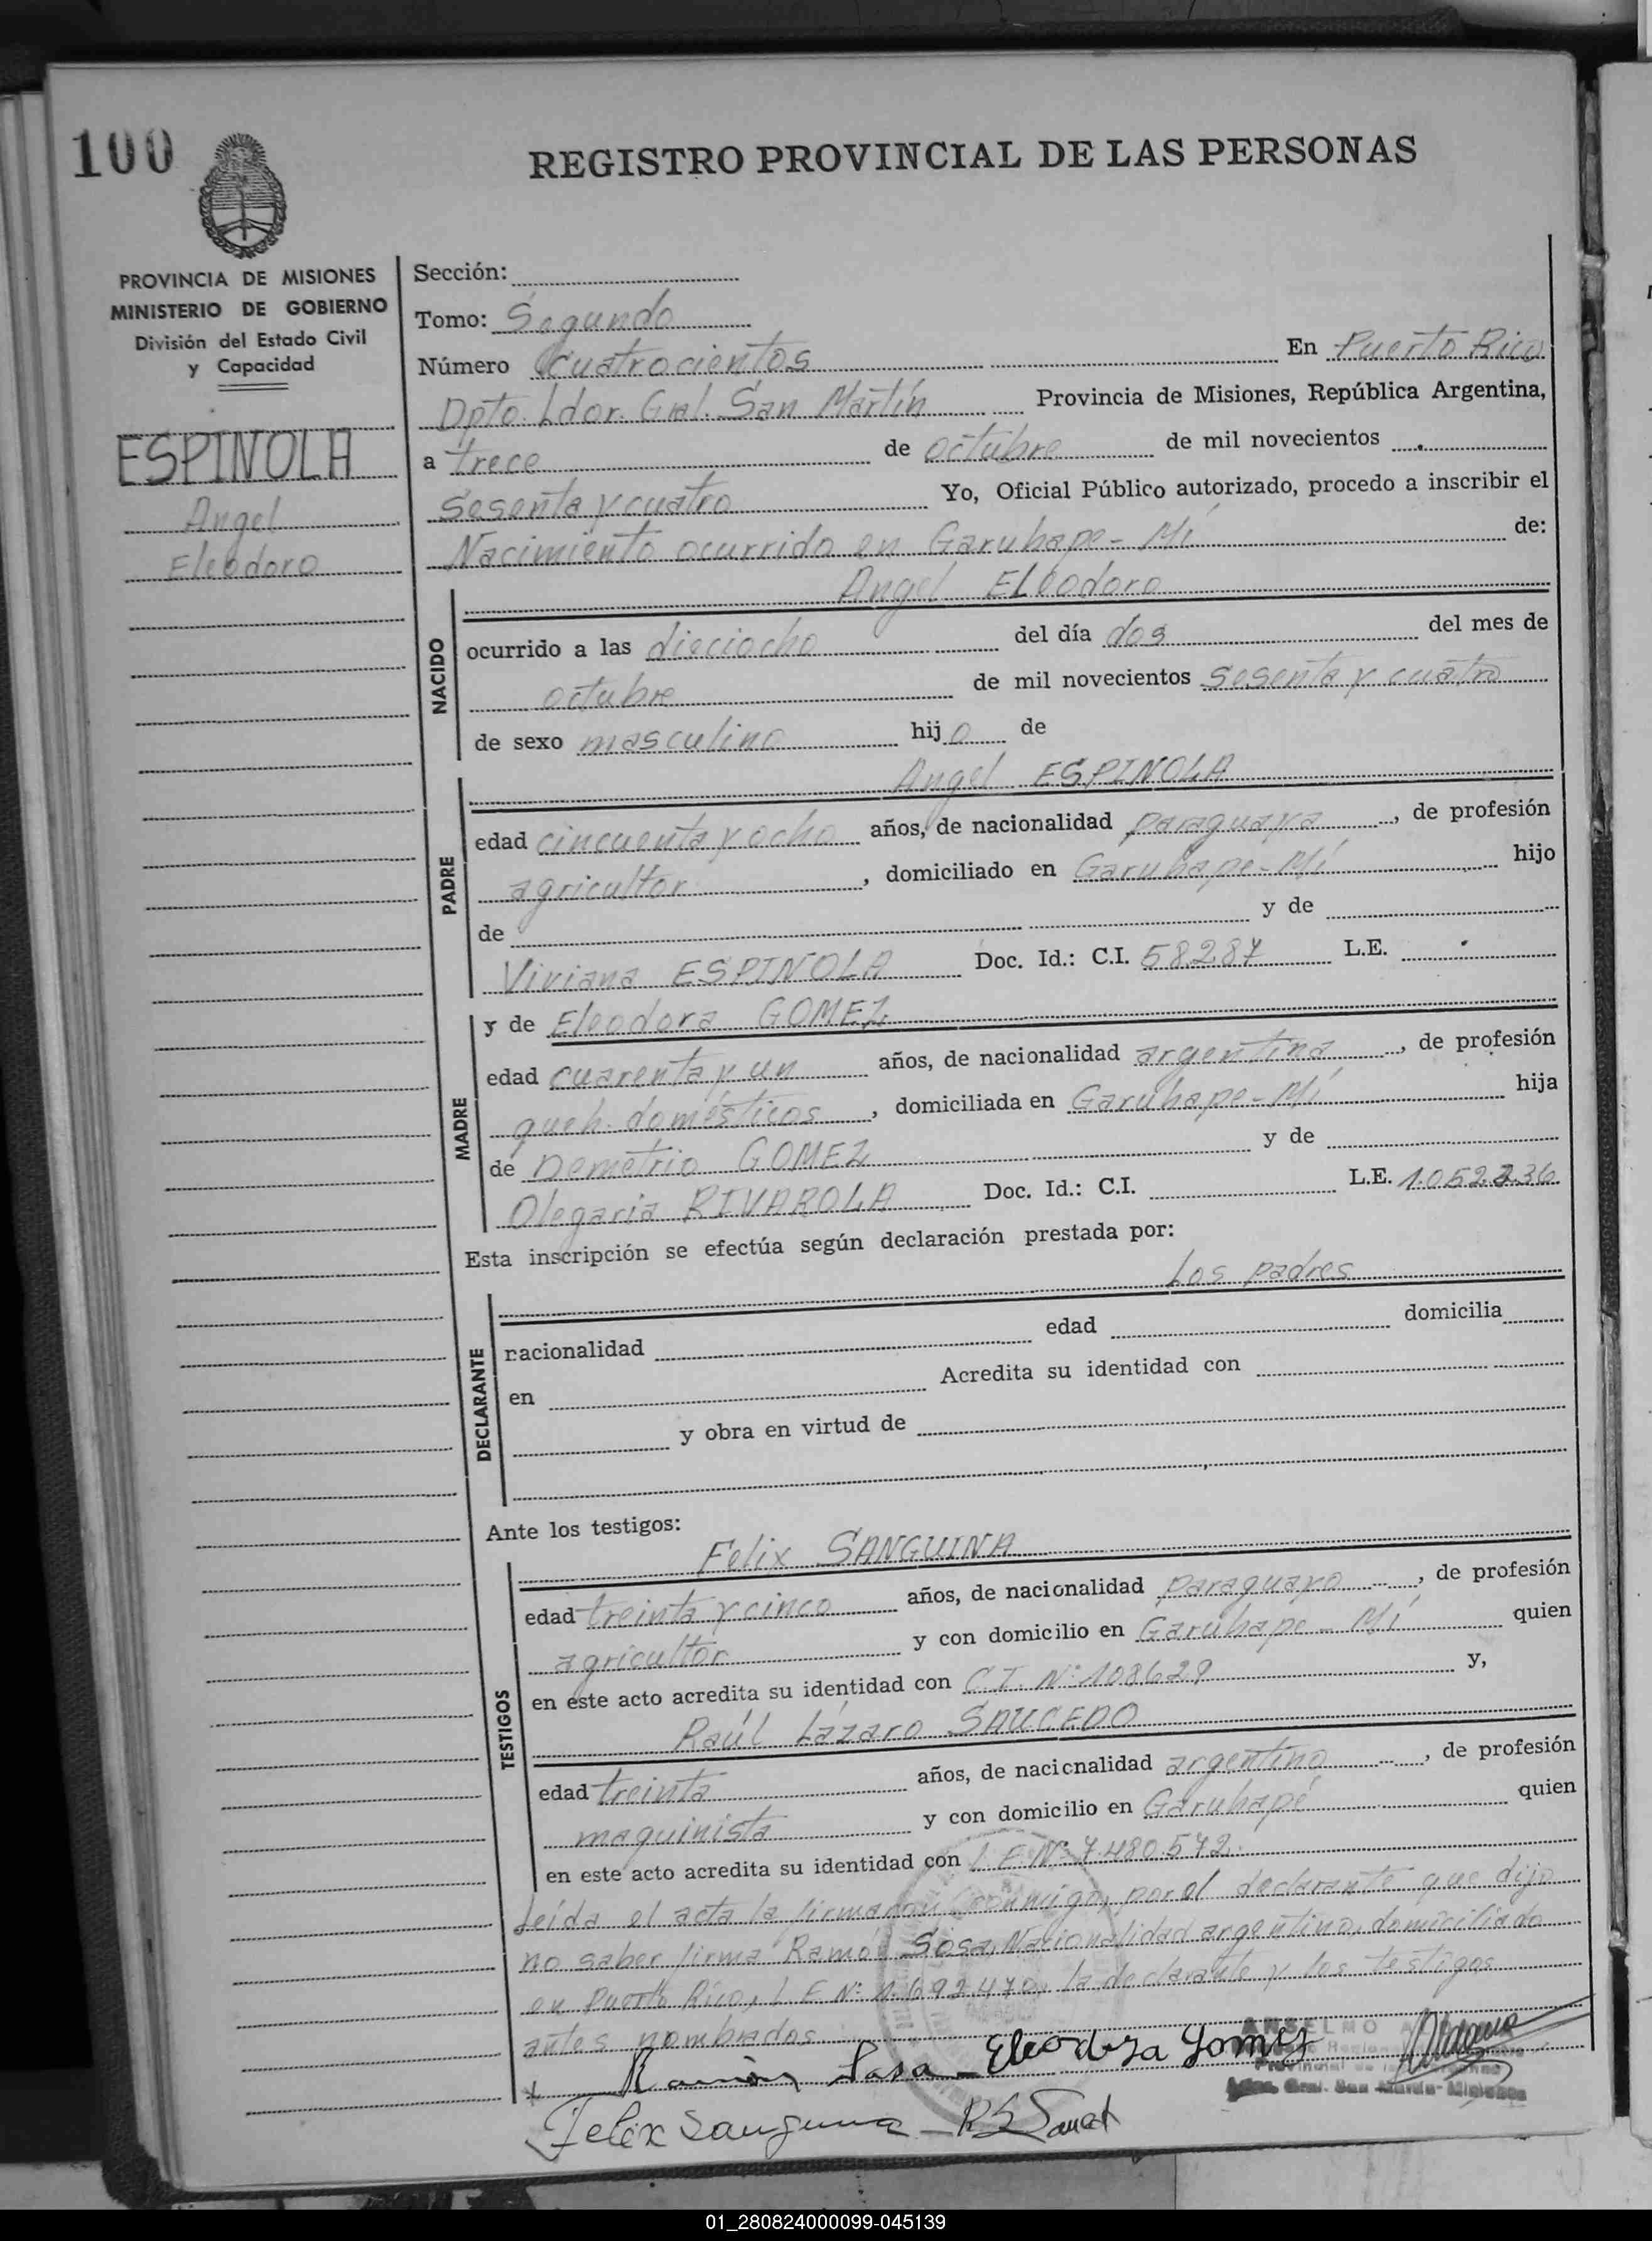 100
REGISTRO PROVINCIAL DE LAS PERSONAS
PROVINCIA DE MISIONES
MINISTERIO DE GOBIERNO
División del Estado Civil
y Capacidad
ESPINOLA
Angel
Eleodoro
Sección:
Tomo: Segundo
Número Cuatrocientos En Puerto Rico
Dpto. Ldor. Gral. San Martín Provincia de Misiones, República Argentina,
a trece de octubre de mil novecientos
sesenta y cuatro Yo, Oficial Público autorizado, procedo a inscribir el
Nacimiento ocurrido en Garuhape-Mí de:
Angel ELeodoro
NACIDO
ocurrido a las dieciocho del día dos del mes de
octubre de mil novecientos sesenta y cuatro
de sexo masculino hijo de
Angel ESPINOLA
PADRE
edad cincuenta y ocho años, de nacionalidad paraguaya, de profesión
agricultor, domiciliado en Garuhape-Mí hijo
de y de
Viviana ESPINOLA Doc. Id.: C.I. 58.287 L.E.
MADRE
y de Eleodora GOMEZ
edad cuarenta y un años, de nacionalidad argentina, de profesión
queh. domésticos, domiciliada en Garuhape-Mí hija
de Demetrio GOMEZ y de
Olegaria RIVAROLA Doc. Id.: C.I. L.E.
Esta inscripción se efectúa según declaración prestada por:
Los padres
DECLARANTE
nacionalidad edad domicilia
en Acredita su identidad con
y obra en virtud de
Ante los testigos:
Felix SANGUINA
TESTIGOS
edad treinta y cinco años, de nacionalidad paraguayo, de profesión
agricultor y con domicilio en Garuhape-Mí quien
en este acto acredita su identidad con C.I. Nº 108629 y,
Raúl Lázaro SAUCEDO
edad treinta años, de nacionalidad argentino, de profesión
maquinista y con domicilio en Garuhapé quien
en este acto acredita su identidad con L.E. Nº 7.480.572.
Leída el acta la firmaron conmigo, por el declarante que dijo
no saber firma Ramón Sosa, Nacionalidad argentino, domiciliado
en Puerto Rico, L.E. Nº 1.692.470, la declarante y los testigos
antes nombrados.
Ramón Sosa - Eleodora Gomez
ANSELMO
Gral. San Martín - Misiones
Felix Sanguina -
01_280824000099-045139